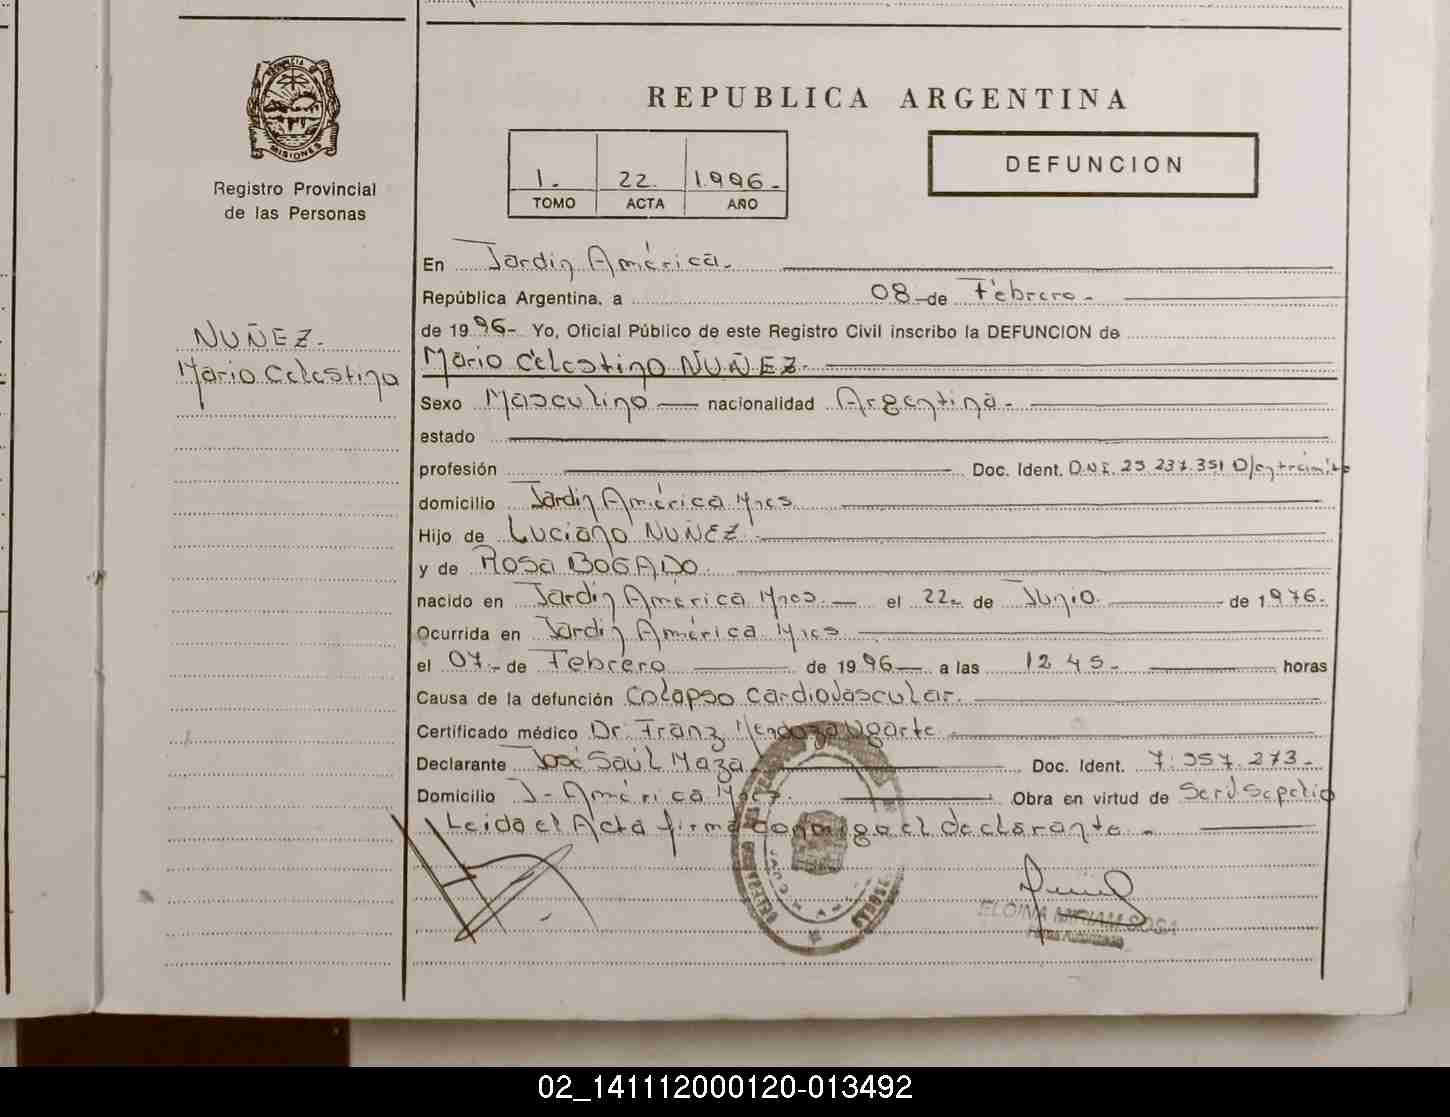 PROVINCIA DE
MISIONES
Registro Provincial
de las Personas
NUÑEZ.
Mario Celestino
REPUBLICA ARGENTINA
1. 22. 1.996.-
TOMO ACTA AÑO
DEFUNCION
En Jardin América.-
República Argentina, a 08 de Febrero.-
de 1996- Yo, Oficial Público de este Registro Civil inscribo la DEFUNCION de
Mario Celestino NUÑEZ.-
Sexo Masculino nacionalidad Argentina.-
estado
profesión Doc. Ident. D.N.I. 25.237.351 D/en trámite
domicilio Jardin América Mnes
Hijo de Luciano NUÑEZ.
y de Rosa BOGADO.
nacido en Jardin América Mnes. el 22- de Junio. de 1976.
Ocurrida en Jardin América Mnes
el 07.- de Febrero de 1996- a las 12 45.- horas
Causa de la defunción Colapso cardiovascular.
Certificado médico Dr. Franz Mendoza Ugarte
Declarante José Saúl Maza Doc. Ident. 7.957.273.-
Domicilio J- América Mnes. Obra en virtud de Serv Sepelio
Leida el Acta firma conmigo el declarante.-
ELOINA MIRIAM SOSA
Firma Autorizada
02_141112000120-013492